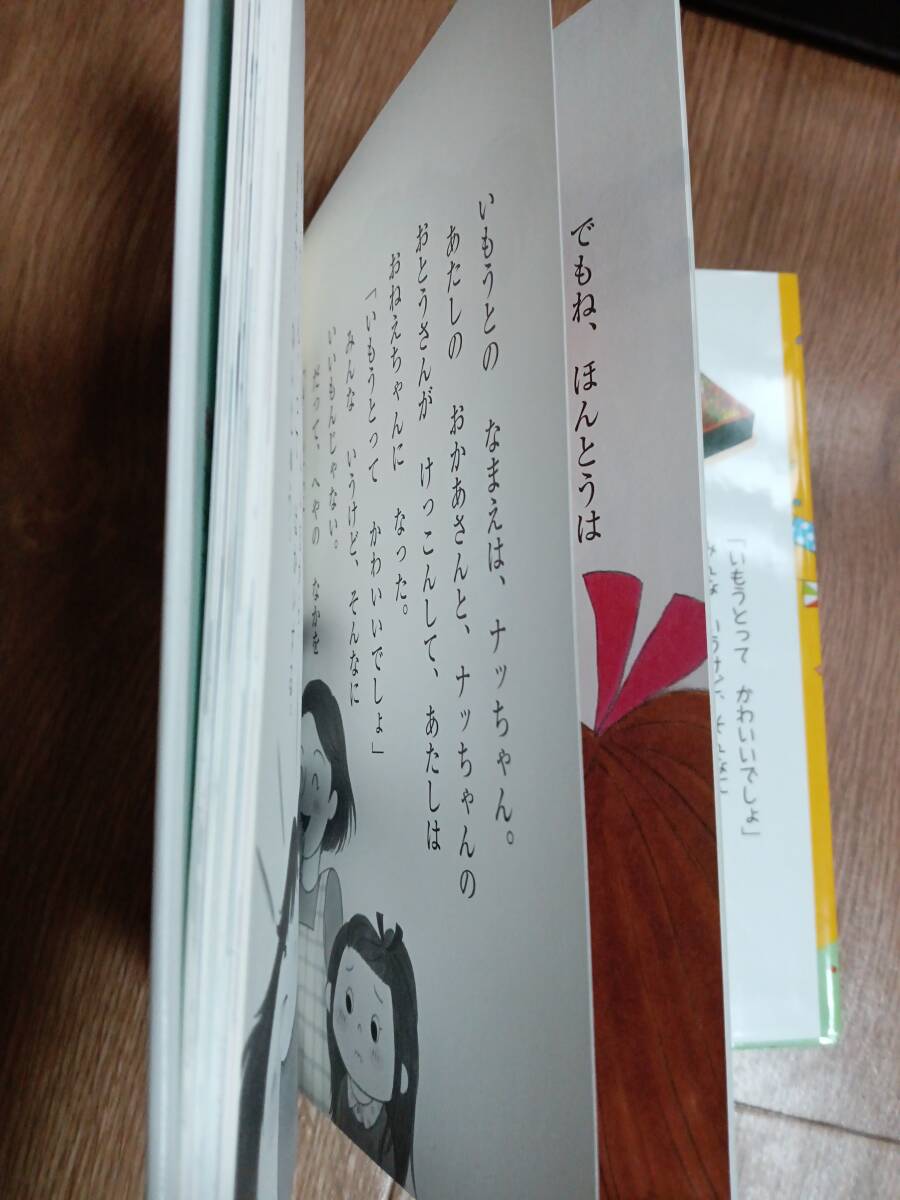 「いもうとって かわいいでしょ」
みんな いうけど、そんなに
でもね、ほんとうは
いもうとの なまえは、ナッちゃん。
あたしの おかあさんと、ナッちゃんの
おとうさんが けっこんして、あたしは
おねえちゃんに なった。
「いもうとって かわいいでしょ」
みんな いうけど、そんなに
いいもんじゃない。
だって、へやの なかを